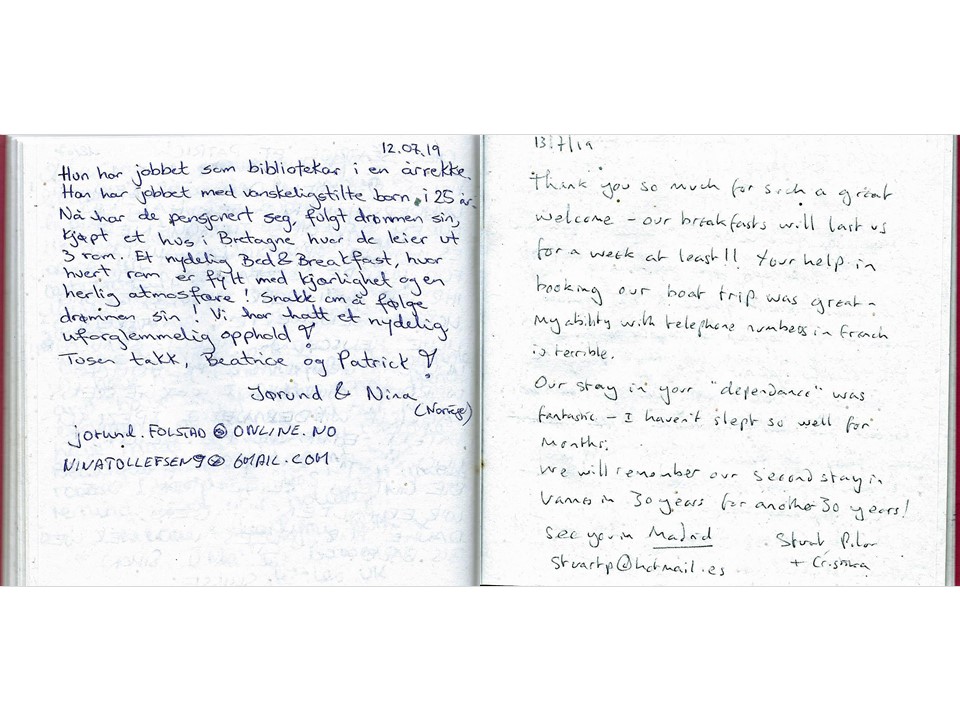 12.07.19
Hun har jobbet som bibliotekar i en årrekke.
Han har jobbet med vanskeligstilte barn i 25 år.
Nå har de pensjonert seg, fulgt drømmen sin,
kjøpt et hus i Bretagne hvor de leier ut
3 rom. Et nydelig Bed & Breakfast, hvor
hvert rom er fylt med kjærlighet og en
herlig atmosfære! Snakk om å følge
drømmen sin! Vi har hatt et nydelig
uforglemmelig opphold!
Tusen takk, Beatrice og Patrick!
Jorund & Nina
(Norège)
jorund.FOLSTAD@ONLINE.NO
NINATOLLEFSEN9@GMAIL.COM
13/7/19
Thank you so much for such a great
welcome – our breakfasts will last us
for a week at least!! Your help in
booking our boat trip was great –
My ability with telephone numbers in French
is terrible.
Our stay in your "dependance" was
fantastic – I haven't slept so well for
months.
We will remember our second stay in
Vannes in 30 years for another 30 years!
See you in Madrid
Stuart Pilar
+ Cristina
stuartp@hotmail.es